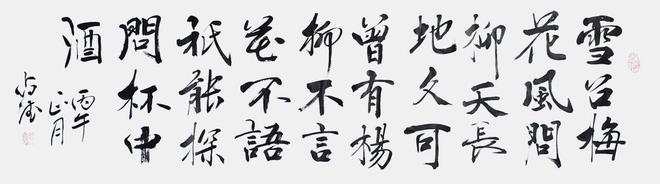 雪召梅
花風問
柳天長
地久可
曾有楊
柳不言
花不語
祇能探
問杯中
酒
丙午
正月